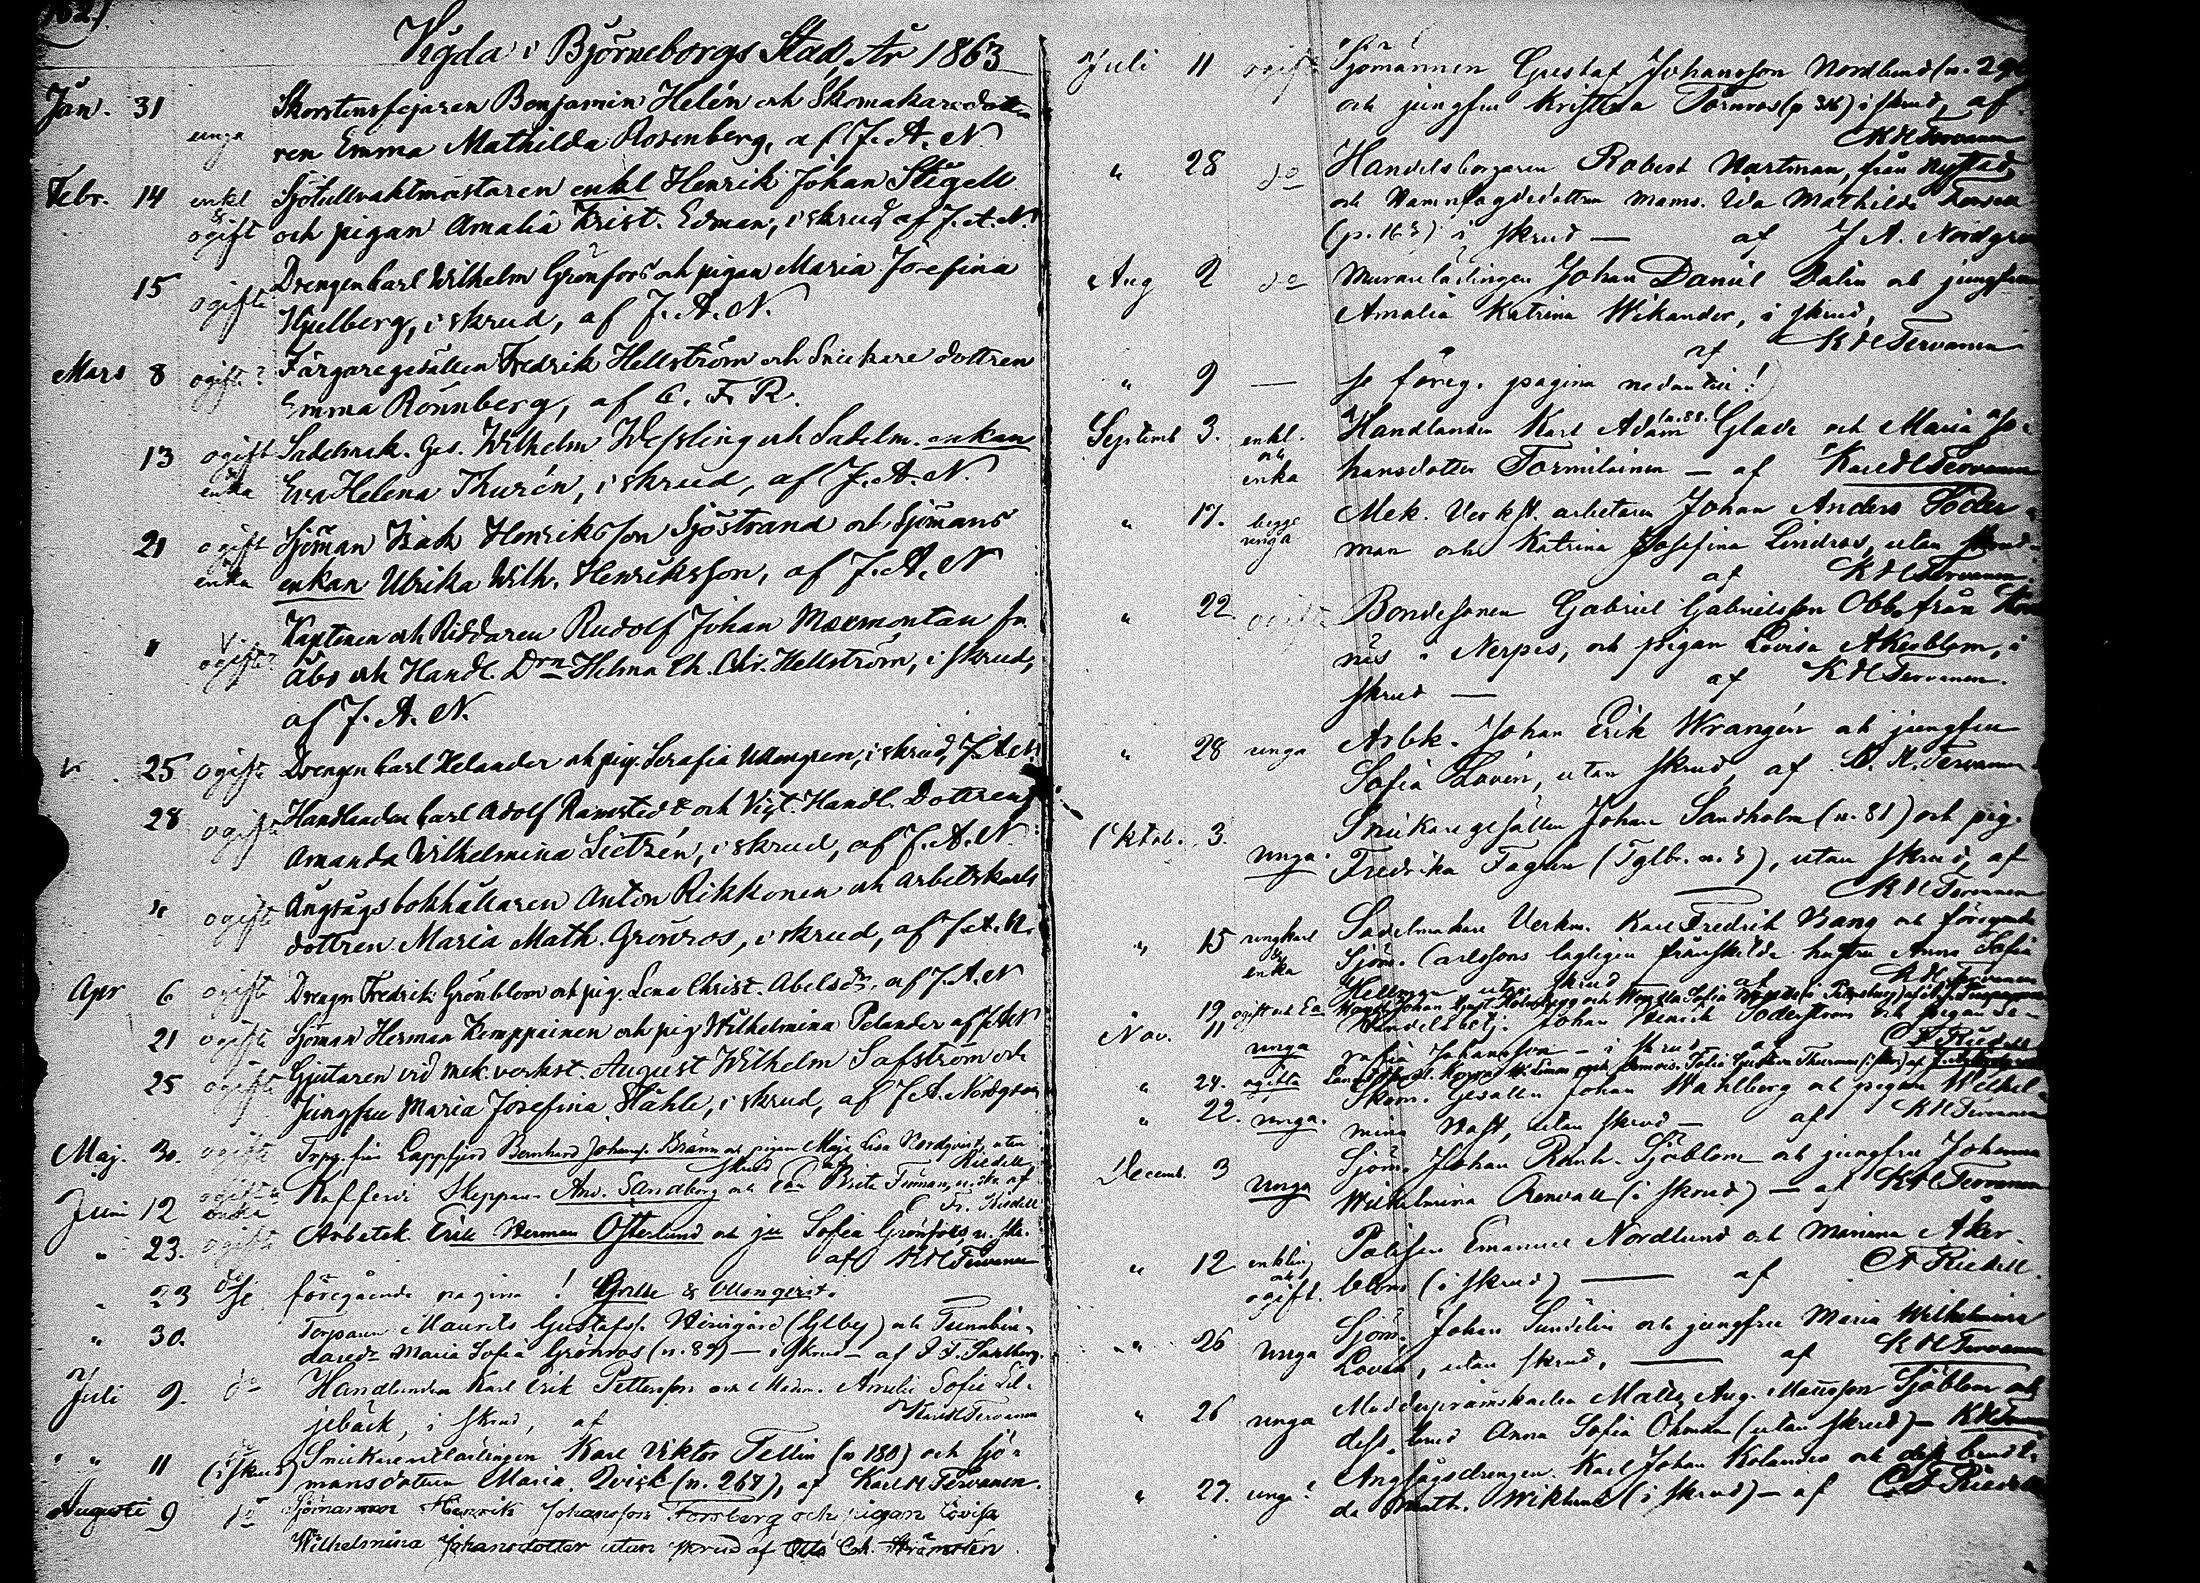 Vigda i Björneborgs Stad År 1863
Jan. 31 unga Skorstensfejaren Benjamin Helén och Skomakaredott-
ren Emma Mathilda Rosenberg, af J. A. N.
Febr. 14 enkl & ogift Sjötullvaktmästaren enkl Henrik Johan Stigell
och pigan Amalia Krist. Edman, i skrud af J. A. N.
15 ogifte Drengen Carl Wilhelm Grönfors och pigan Maria Josefina
Hjulberg, i skrud, af J. A. N.
Mars 8 ogifte? Färgaregesällen Fredrik Hellström och Snickare dottren
Emma Rönnberg, af C. F. R.
13 ogift enka Sadelmak. Ges. Wilhelm Wessling och Sadelm. enkan
Eva Helena Thurén, i skrud, af J. A. N.
21 ogift enka Sjöman Isack Henriksson Sjöstrand och Sjömans
enkan Ulrika Wilh. Henriksson, af J. A. N
" ogifte? Kaptenen och Riddaren Rudolf Johan Maxmontan fr.
Åbo och Handl. Drn Helma Ch. Chr. Hellström, i skrud,
af J. A. N.
" 25 ogifte Drengen Carl Helander och pig. Serafia Ullengren, i skrud, J. A. N.
28 ogifte Handlanden Carl Adolf Ramstedt och Vigt. Handl. Dottren
Amanda Wilhelmina Lietzén, i skrud, af J. A. N.
" ogifte Ångtågs bokhållaren Anton Rikkonen och arbetskarls
dottren Maria Math. Grönros, i skrud, af J. A. N.
Apr 6 ogifte Drengen Fredrik Grönblom och pig. Lena Christ. Abelsdr, af J. A. N
21 ogifte Sjöman Herman Kemppainen och pig Wilhelmina Pelander af J. A. N
25 ogifte Gjutaren vid mek. verkst. August Wilhelm Safström och
Jungfru Maria Josefina Ståhle, i skrud, af J. A. Nordgren
Maj. 30. ogifte Torp. från Lappfjerd Bernhard Johanss. Bränn och pigan Maja Lisa Nordqvist, utan
skrud af Riedell
Juni 12 ogift & enka Kofferdi Skeppare And. Sandberg och Brita af
C Fr. Riedell
" 23. ogifte Arbetsk. Erik Herman Österlund och Sofia Grönfors u. skr.
af K H Tervanen
" 23 se föregående pagina! Grelle & Ullenqvist.
" 30. Torparen Maurits Gustafss. (Ulfby) och Tunnbin-
daredr Maria Sofia Grönros (n. 89) — i skrud — af J. F. Sahlberg.
Juli 9. do Handlanden Karl Erik Pettersson och Amelie Sofie Lil-
jebäck, i skrud, af Karl H Tervanen
" " 11 do (i skrud) Snickarelärlingen Karl Viktor Tellin (n 180) och sjö-
mansdottren Maria Qvick (n. 267), af Karl H Tervanen.
Augusti 9 do Sjömannen Henrik Johansson Forsberg och pigan Lovisa
Wilhelmina Johansdotter utan skrud af Otto Ch. Strömstén
Juli 11 ogifte Sjömannen Gustaf Johansson Nordlund (n. 29
och jungfru Kristina Törnroos (p 316) i skrud, af
K H Tervanen
" 28 do Handelsborgaren Robert Hartman, från Nystad,
och Hamnfogdedottren Mams. Ida Mathilda
(p. 163) i skrud — af J A. Nordgren
Aug 2 do Murarelärlingen Johan Daniel Dalin och jungfrun
Amalia Katrina Wikander, i skrud,
af K H Tervanen
" 9 — se föreg. pagina nedantill!
Septemb 3. enkl. och enka Handlanden Karl Adam (n. 88. Glade och Maria Jo-
hansdotter Tormilainen — af Karl H Tervanen
" 17. begge unga Mek. Verkst. arbetaren Johan Anders Söder-
man och Katrina Josefina Lindros, utan skrud —
af K H Tervanen.
" 22. ogifte Bondesonen Gabriel Gabrielsson Obbo från
näs i Nerpes, och pigan Lovisa Åkerblom, i
skrud — af K H Tervanen.
" 28 unga Arbk. Johan Erik Wrangén och jungfru
Sofia Lovén, utan skrud, af K. H. Tervanen.
Oktob. 3. unga. Snickaregesällen Johan Sandholm (n. 81) och pig.
Fredrika Fagrén (Tglbr. n. 3), utan skrud, af
K H Tervanen
" 15 ungkarl & enka Sadelmakare Verkm. Karl Fredrik Bang och föregående
Sjöm. Carlssons lagligen frånskilde hustru Anna Sofia
Hellman utan skrud af K H Tervanen
" 19 ogift och Johan
Nov. 11 unga Handelsbetj. Johan Henrik Söderström och pigan Se-
rafia Johansson — i skrud — af C F Riedell
" 24. ogifta
" 22. unga. Skom. Gesällen Johan Wahlberg och pigan Wilhel-
mina Hast, utan skrud — af K H Tervanen
Decemb. 3 unga Sjöm. Johan Ranh. Sjöblom och jungfru Johanna
Wilhelmina Renvall (i skrud) — af K H Tervanen
" 12 enkling och ogift. Polisen Emanuel Nordlund och Minna Åker-
blom (i skrud) — af C F Riedell.
" 26 unga Sjöm. Johan Sundelin och jungfru Maria Wilhelmina
Lovén, utan skrud. — af K H Tervanen
" 26 unga Mudderpråmskarlen Matts Aug. Mattsson Sjöblom och
dess brud Anna Sofia Öhman (utan skrud) — K H
" 27. unga? Ångtågsdrengen Karl Johan Kolander och dess brud
da Math. Wiklund (i skrud) — af C. F Riedell